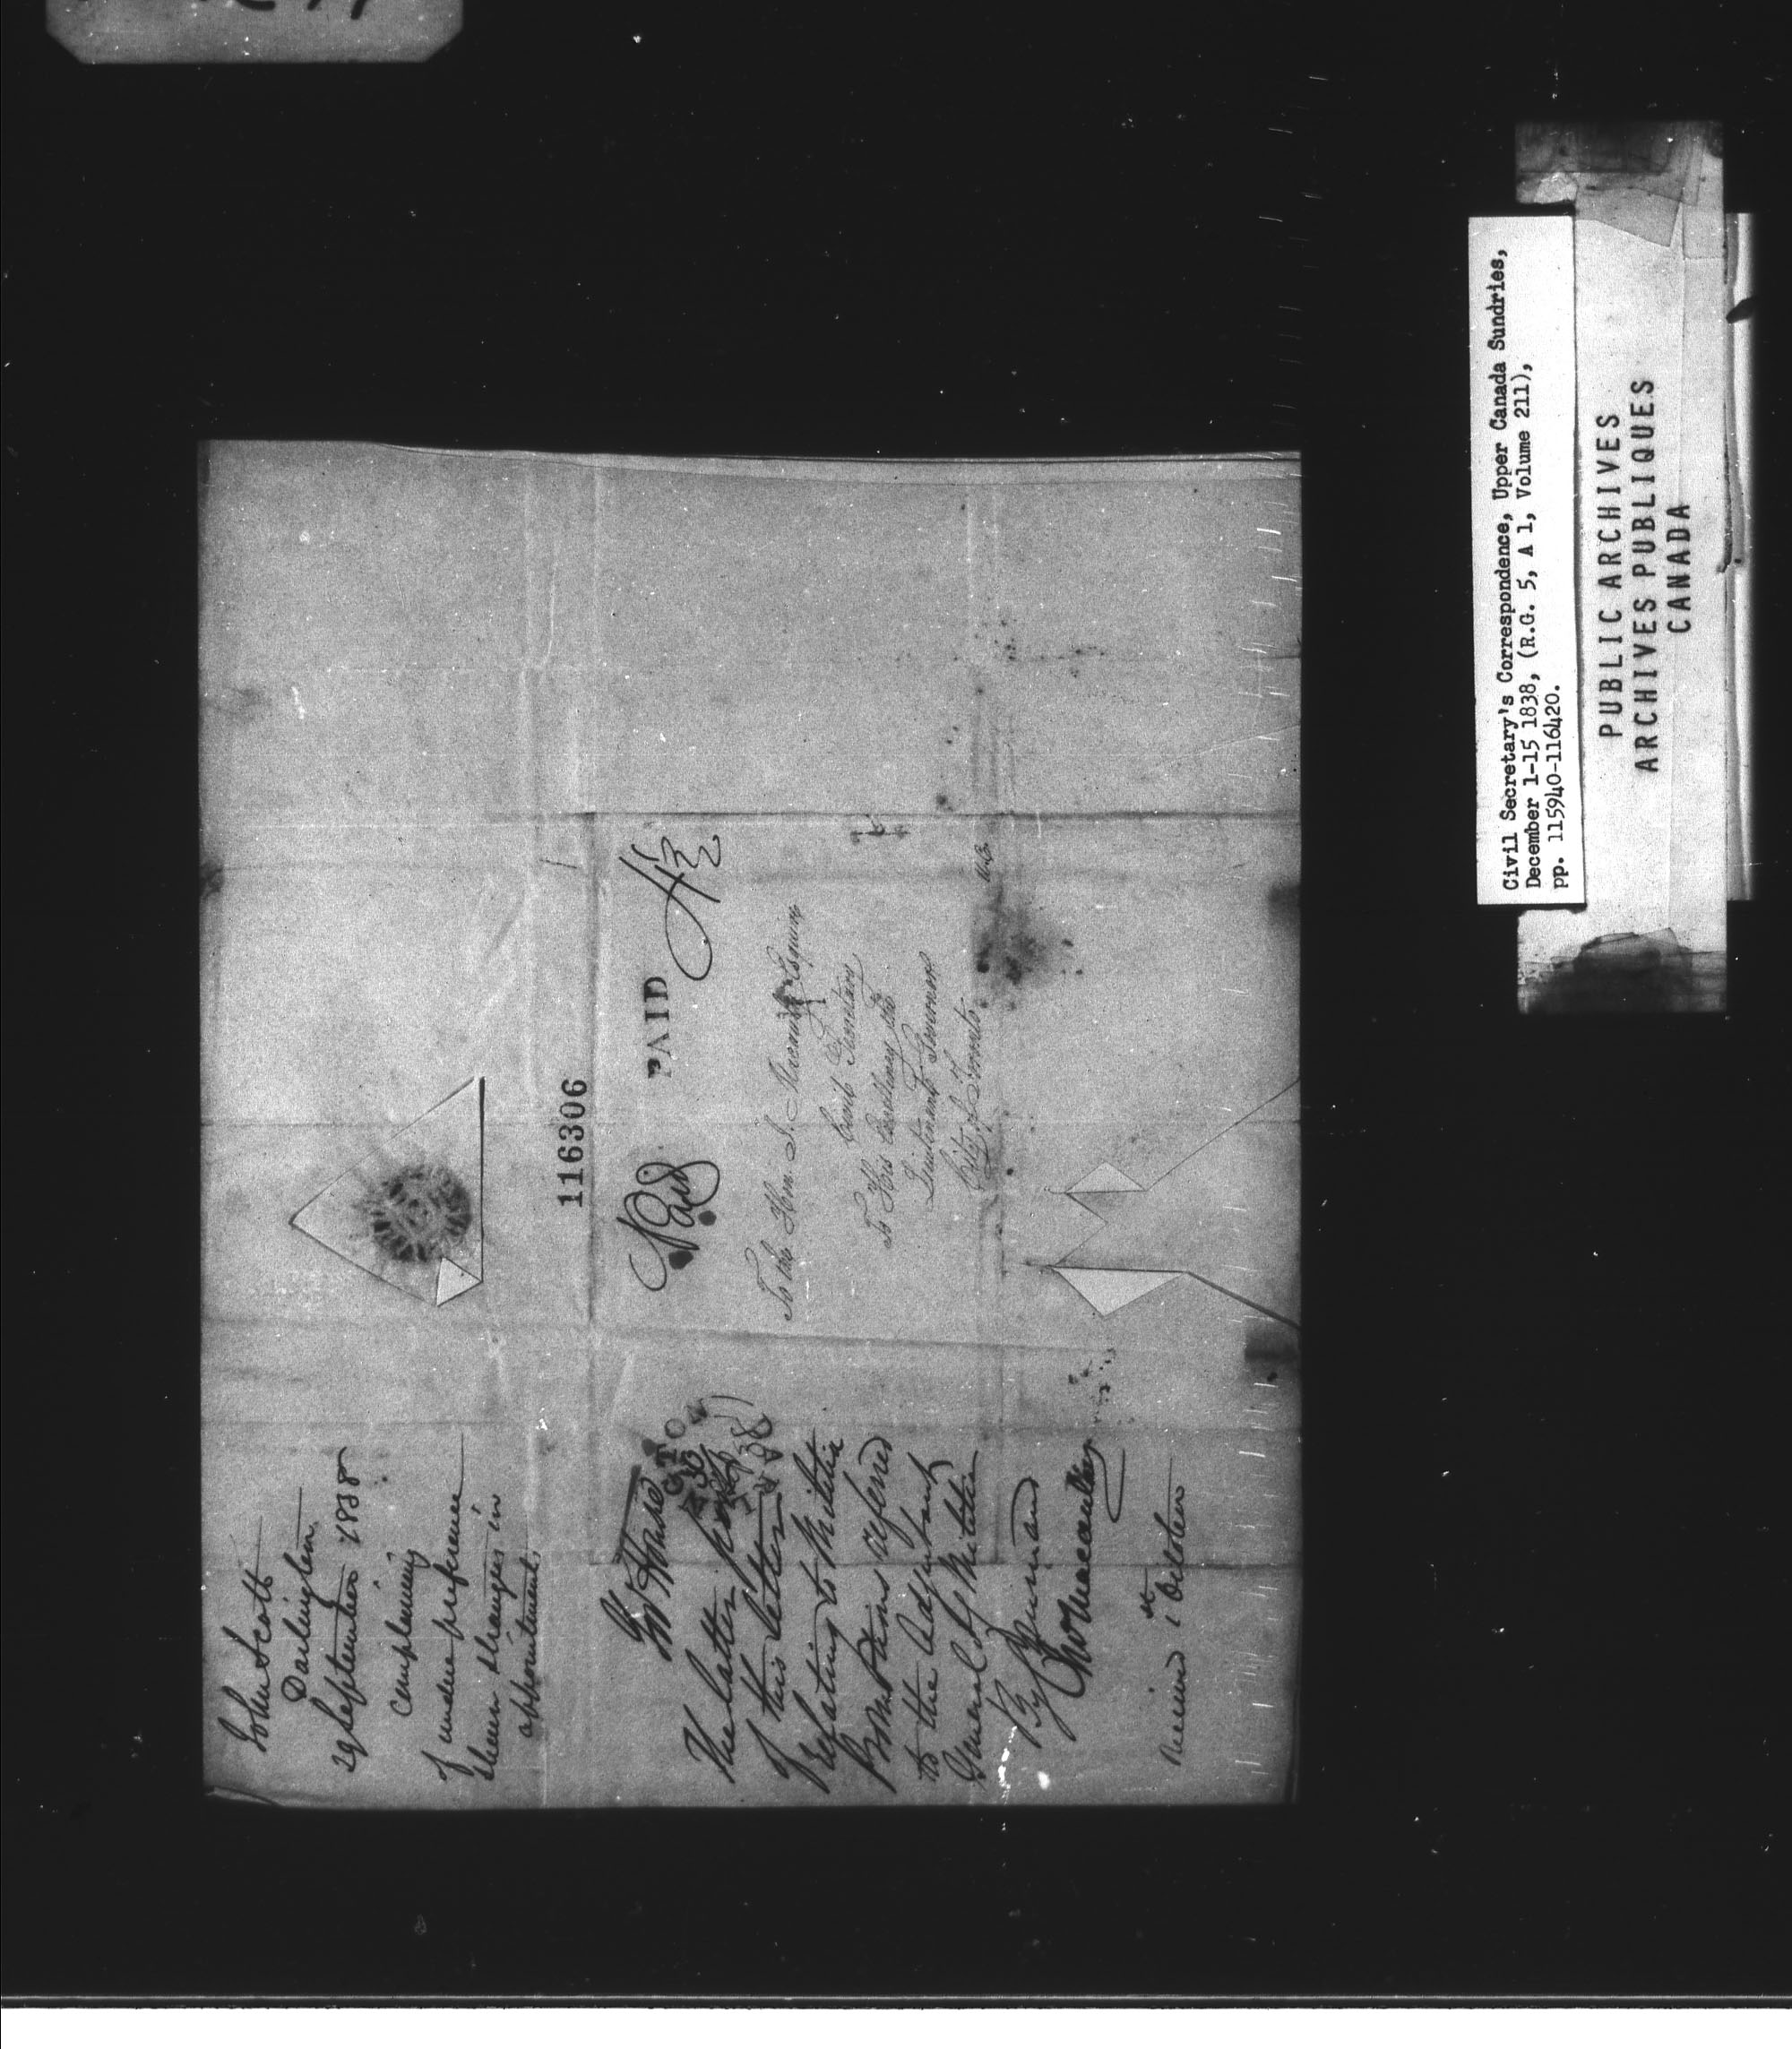 John Scott
Darlington
29 September 1838
complaining
of undue preference
shewn strangers in
appointments.
116306
Paid
PAID
4½
To the Hon. J. Macaulay Esquire
Civil Secretary
To His Excellency the
Lieutenant Governor
City of Toronto
U.C.
Gov House
1838
The latter part
of this letter
relating to Militia
Promotions referred
to the Adjutant
General of Militia
By Command
Jno Macaulay
Received 1st October
Civil Secretary's Correspondence, Upper Canada Sundries,
December 1-15 1838, (R.G. 5, A 1, Volume 211),
pp. 115940-116420.
PUBLIC ARCHIVES
ARCHIVES PUBLIQUES
CANADA